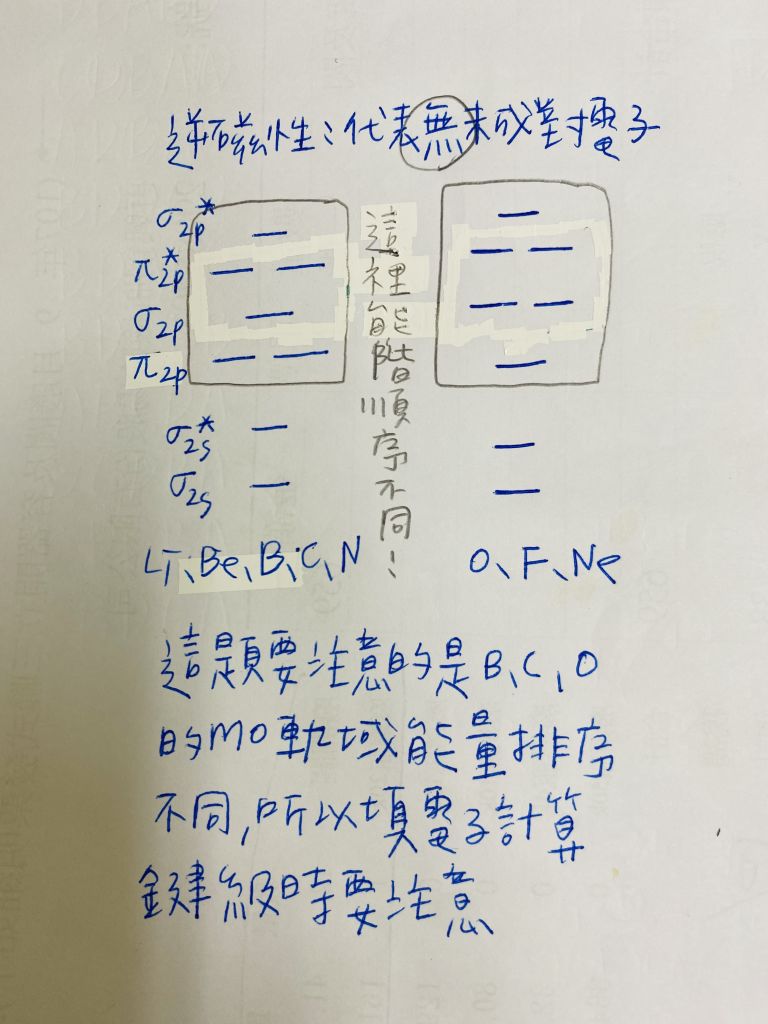 逆磁性:代表無未成對電子
σ2p*
π2p*
σ2p
π2p
σ2s*
σ2s
這裡能階順序不同!
Li、Be、B、C、N
O、F、Ne
這題要注意的是B、C、O
的MO軌域能量排序
不同,所以填電子計算
鍵級時要注意